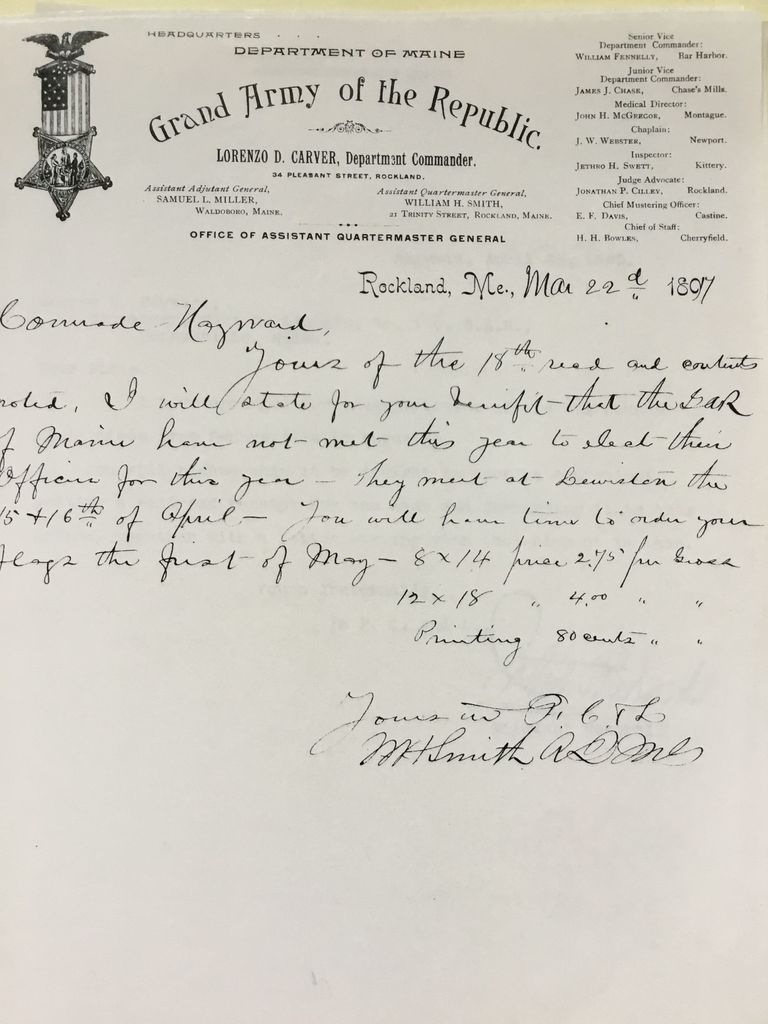 HEADQUARTERS . . .
DEPARTMENT OF MAINE
Grand Army of the Republic.
LORENZO D. CARVER, Department Commander.
34 PLEASANT STREET, ROCKLAND.
Assistant Adjutant General,
SAMUEL L. MILLER,
WALDOBORO, MAINE.
Assistant Quartermaster General,
WILLIAM H. SMITH,
21 TRINITY STREET, ROCKLAND, MAINE.
OFFICE OF ASSISTANT QUARTERMASTER GENERAL
Senior Vice
Department Commander:
WILLIAM FENNELLY, Bar Harbor.
Junior Vice
Department Commander:
JAMES J. CHASE, Chase's Mills.
Medical Director:
JOHN H. MCGREGOR, Montague.
Chaplain:
J. W. WEBSTER, Newport.
Inspector:
JETHRO H. SWETT, Kittery.
Judge Advocate:
JONATHAN P. CILLEY, Rockland.
Chief Mustering Officer:
E. F. DAVIS, Castine.
Chief of Staff:
H. H. BOWLES, Cherryfield.
Rockland, Me., Mar 22d 1897
Comrade Hayward,
Yours of the 18th recd and contents
noted, I will state for your benifit that the GAR
of Maine have not met this year to elect their
Officers for this year — They meet at Lewiston the
15 + 16th of April — You will have time to order your
flags the first of May — 8 x 14 price 2.75 per Gross
12 x 18 " 4.00 " "
Printing 80 cents " "
Yours in F. C. & L
WH Smith A Q M G